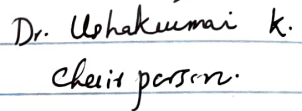 Dr. Ushakumai K.
Chairperson.